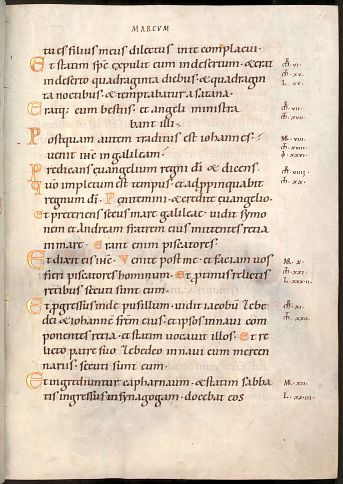 MARCVM
tu es filius meus dilectus inte complacui·
Et statim sp̄s expulit eum indesertum· & erat
indeserto quadraginta diebus· & quadragin
ta noctibus & temptabatur a satana·
Eratq; cum bestiis· et angeli ministra
bant illi·
Postquam autem traditus est iohannes·
uenit ih̄c in galileam·
Predicans euangelium regni dī & dicens·
Quo impletum est tempus· et adpropinquabit
regnum dī· Penitemini & credite euangelio·
Et preteriens secus mare galileae· uidit symo
nem et andream fratrem eius mittentes retia
in mare· Erant enim piscatores·
Et dixit eis ih̄c· Venite post me· et faciam uos
fieri piscatores hominum· Et protinus relictis
retibus secuti sunt eum·
Et progressus inde pusillum· uidit iacobū zebe
dei & iohannē frēm eius· et ipsos innaui com
ponentes retia· et statim uocauit illos· Et re
licto patre suo zebedeo innaui cum mercen
nariis· secuti sunt eum·
Et ingrediuntur capharnaum· & statim sabba
tis ingressus in synagogam· docebat eos
VI·
XV·
L· XV·
VII·
XVII·
M· VIII·
XVIII·
XXVI·
VIIII·
XX·
M· X·
XXI·
L· XXXII·
XI·
XXII·
M· XII·
L· XXIII·